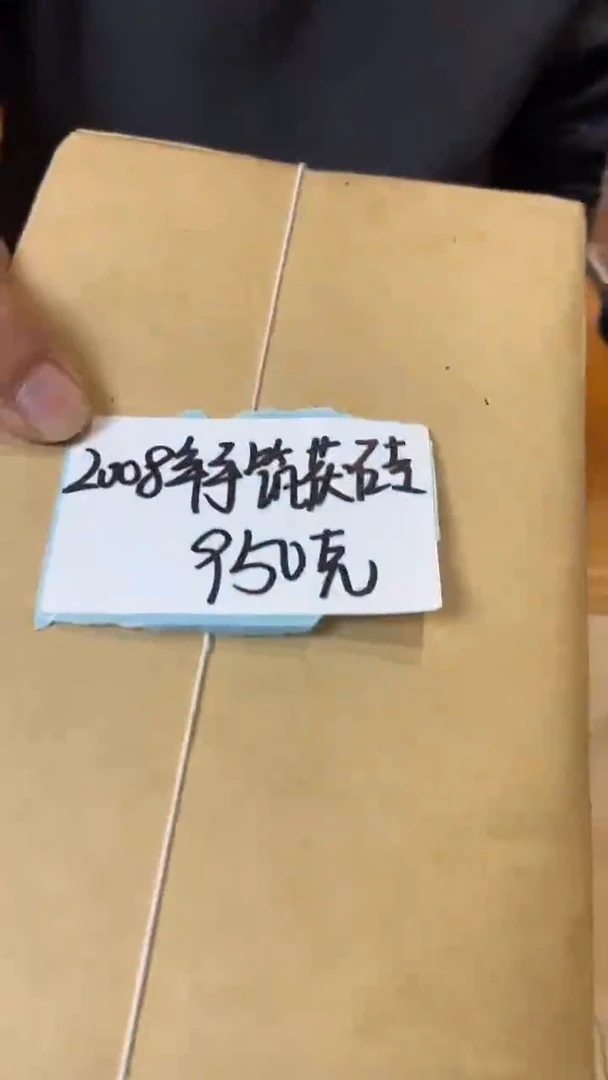 2008年手筑茯砖
950克